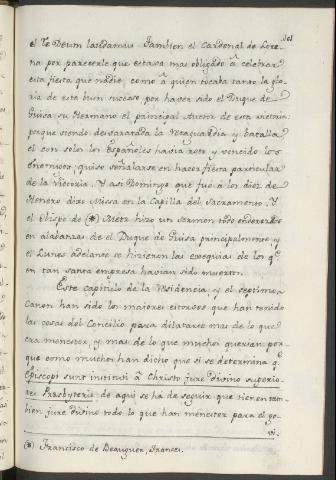 101
el Te Deum laudamus. Tambien el Cardenal de Lore-
na por parecerle que estava mas obligado à celebrar
esta fiesta que nadie, como à quien tocaba tanto la glo-
ria de este buen suceso, por haver sido el Duque de
Guisa su Hermano el principal Auctor de esta victoria:
porque siendo desbaratada la Retaguardia y batalla
el con solos los Españoles havia roto y vencido los
enemigos, quiso señalarse en hacer fiesta particular
de la Victoria. Y asi Domingo que fuè à los diez de
Henero dixo Missa en la Capilla del Sacramento. Y
el Obispo de (*) Metz hizo un Sermon todo
en alabanzas de el Duque de Guisa principalmente y
el Lunes adelante se hizieron las exequias de los qe
en tan santa empresa havian sido muertos.
Este capitulo de la Residencia, y el septimo
Canon han sido los maiores estorvos que han tenido
las cosas del Concilio para dilatarse mas de lo que
era menester, y mas de lo que muchos querian: por
que como muchos han dicho que si se determina qe
Episcopi sunt instituti à Christo jure Divino superio-
res Presbyteris de aqui se ha de seguir que tienen tam-
bien jure Divino todo lo que han menester para el go-
vi.
(*) Francisco de Beauguer, Frances.